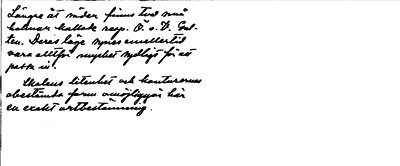 Längre åt söder finns två små
holmar kallade resp. Ö. o. V. Gul-
ten. Deras läge synes emellertid
vara alltför mycket sydligt för att
passa in.
Skalans litenhet och konturernas
obestämda form omöjliggör här
en exakt artbestämning.